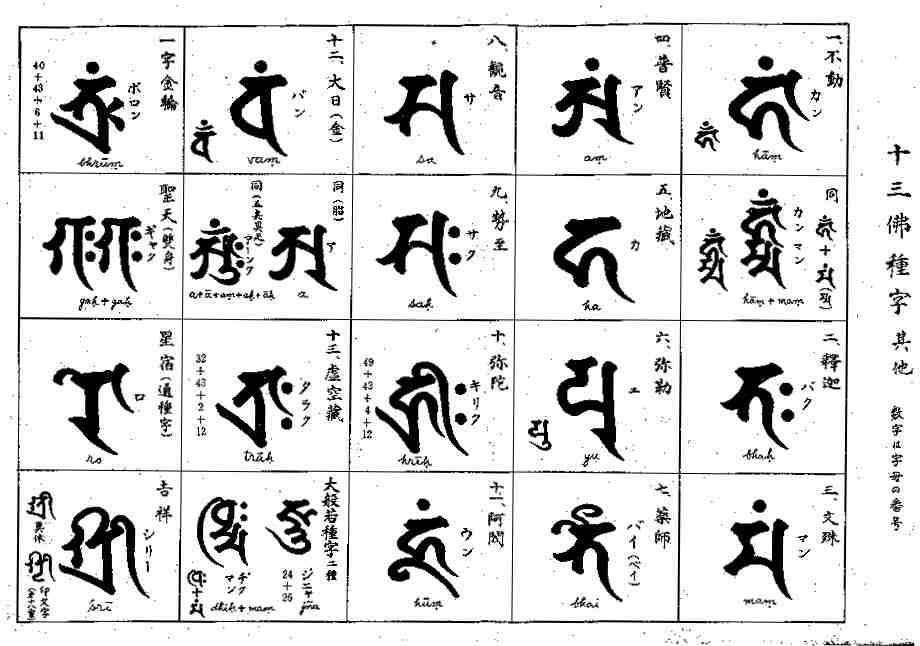 十三佛種字 其他 数字は字母の番号
一、不動
カン
hāṃ
同
カンマン
hāṃ + maṃ
二、釋迦
バク
bhaḥ
三、文殊
マン
maṃ
四、普賢
アン
aṃ
五、地蔵
カ
ha
六、弥勒
ユ
yu
七、薬師
バイ(ベイ)
bhai
八、観音
サ
sa
九、勢至
サク
saḥ
十、弥陀
キリク
49+43+4+12
hrīḥ
十一、阿閦
ウン
hūṃ
十二、大日(金)
バン
vaṃ
同(胎)
ア
a
同(五点具足)
アーンク
a+ā+aṃ+aḥ+āḥ
十三、虚空蔵
タラク
32+43+2+12
trāḥ
大般若種字二種
ジニャ
24+26
jña
ヂクマン
dhiḥ + maṃ
一字金輪
ボロン
40+43+6+11
bhrūṃ
聖天(雙身)
ギャク
gaḥ + gaḥ
星宿(通種字)
ロ
ro
吉祥
シリー
śrī
異体
印文字